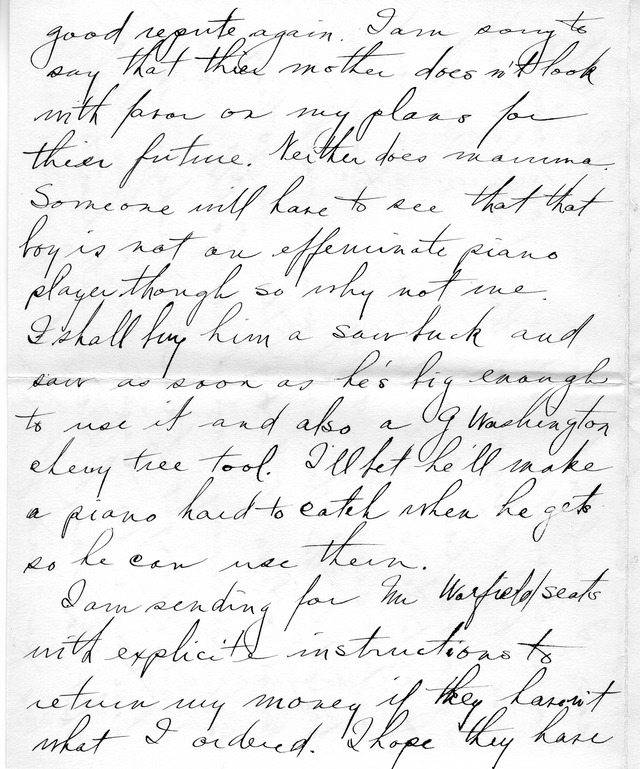 good repute again. I am sorry to
say that thier mother does n't look
with favor on my plans for
thier future. Neither does mamma.
Someone will have to see that that
boy is not an effeminate piano
player though so why not me.
I shall buy him a sawbuck and
saw as soon as he's big enough
to use it and also a G Washington
cherry tree tool. I'll bet he'll make
a piano hard to catch when he gets
so he can use them.
I am sending for Warfield seats
with explicite instructions to
return my money if they haven't
what I ordered. I hope they have